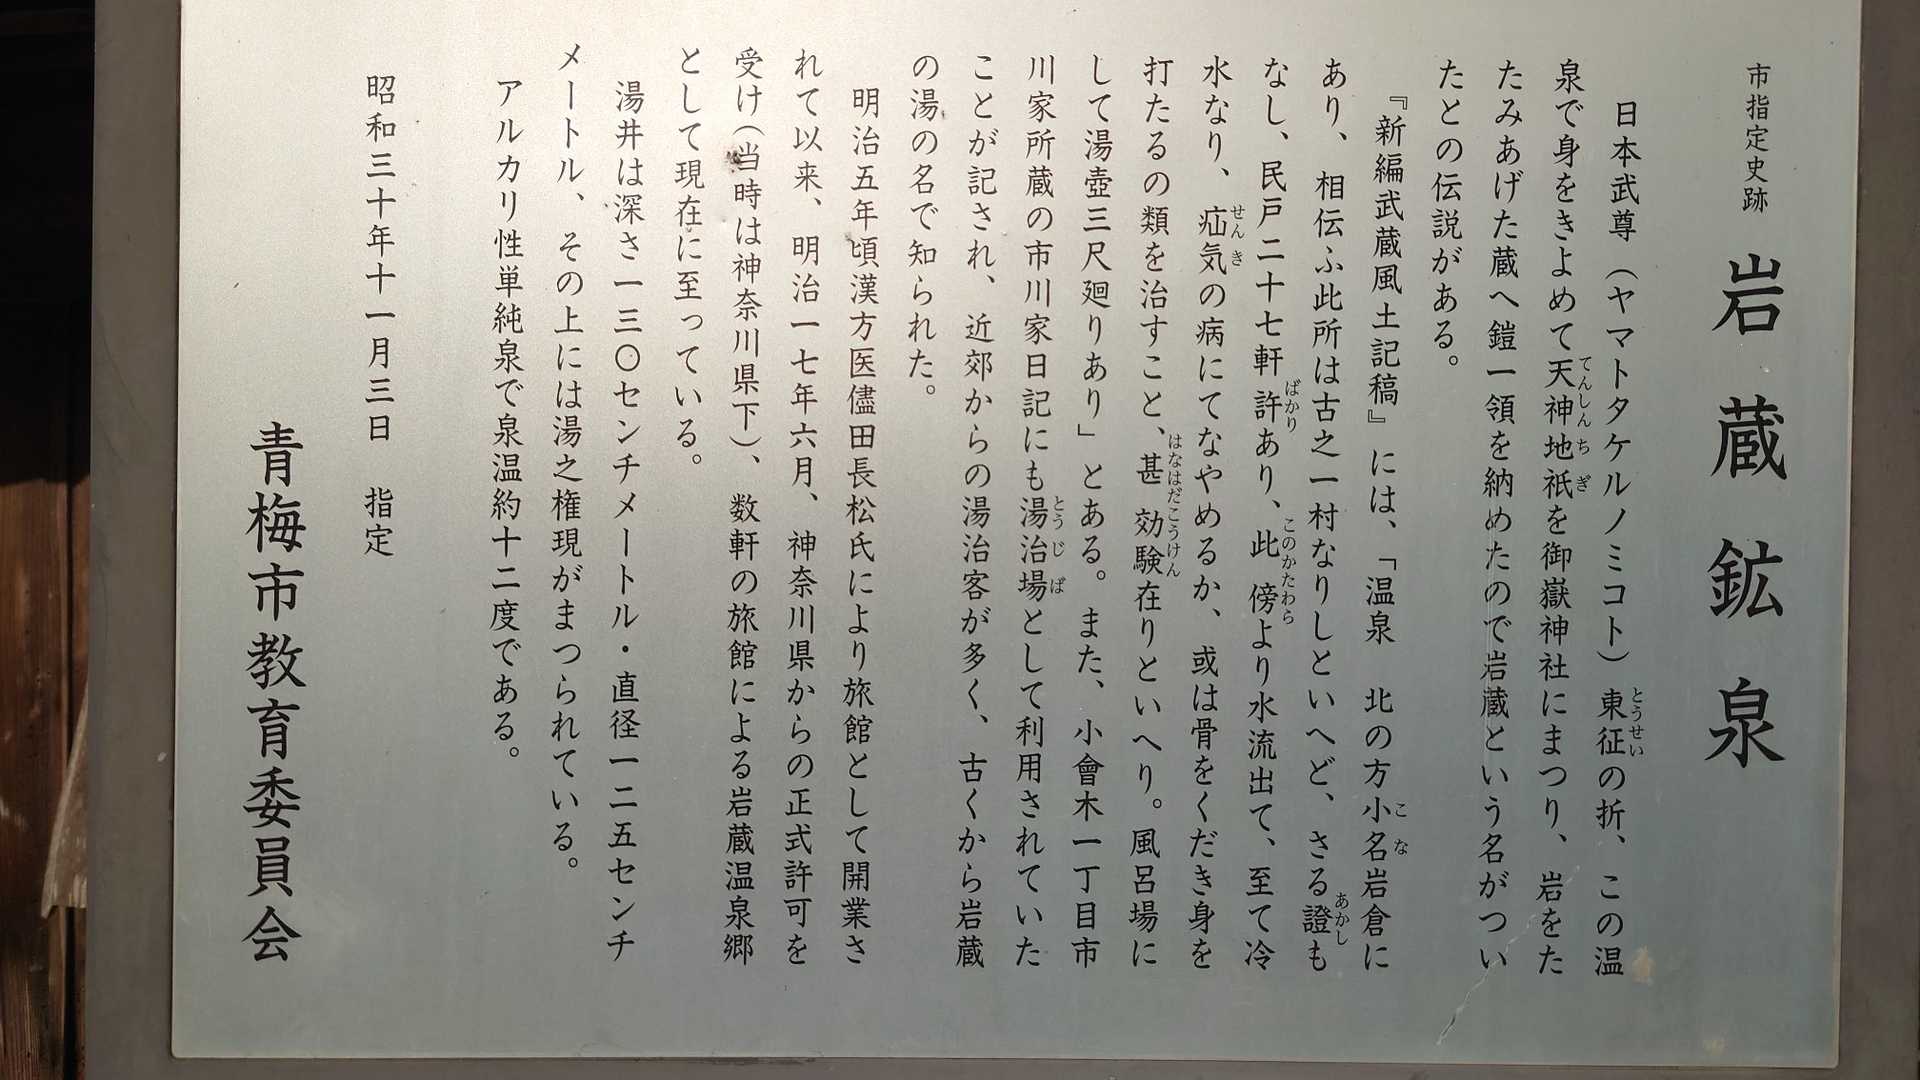 市指定史跡 岩蔵鉱泉
日本武尊(ヤマトタケルノミコト)東征の折、この温
泉で身をきよめて天神地祇を御嶽神社にまつり、岩をた
たみあげた蔵へ鎧一領を納めたので岩蔵という名がつい
たとの伝説がある。
『新編武蔵風土記稿』には、「温泉 北の方小名岩倉に
あり、相伝ふ此所は古之一村なりしといへど、さる證も
なし、民戸二十七軒許あり、此傍より水流出て、至て冷
水なり、疝気の病にてなやめるか、或は骨をくだき身を
打たるの類を治すこと、甚効験在りといへり。風呂場に
して湯壺三尺廻りあり」とある。また、小會木一丁目市
川家所蔵の市川家日記にも湯治場として利用されていた
ことが記され、近郊からの湯治客が多く、古くから岩蔵
の湯の名で知られた。
明治五年頃漢方医儘田長松氏により旅館として開業さ
れて以来、明治一七年六月、神奈川県からの正式許可を
受け(当時は神奈川県下)、数軒の旅館による岩蔵温泉郷
として現在に至っている。
湯井は深さ一三〇センチメートル・直径一二五センチ
メートル、その上には湯之権現がまつられている。
アルカリ性単純泉で泉温約十二度である。
昭和三十年十一月三日 指定
青梅市教育委員会